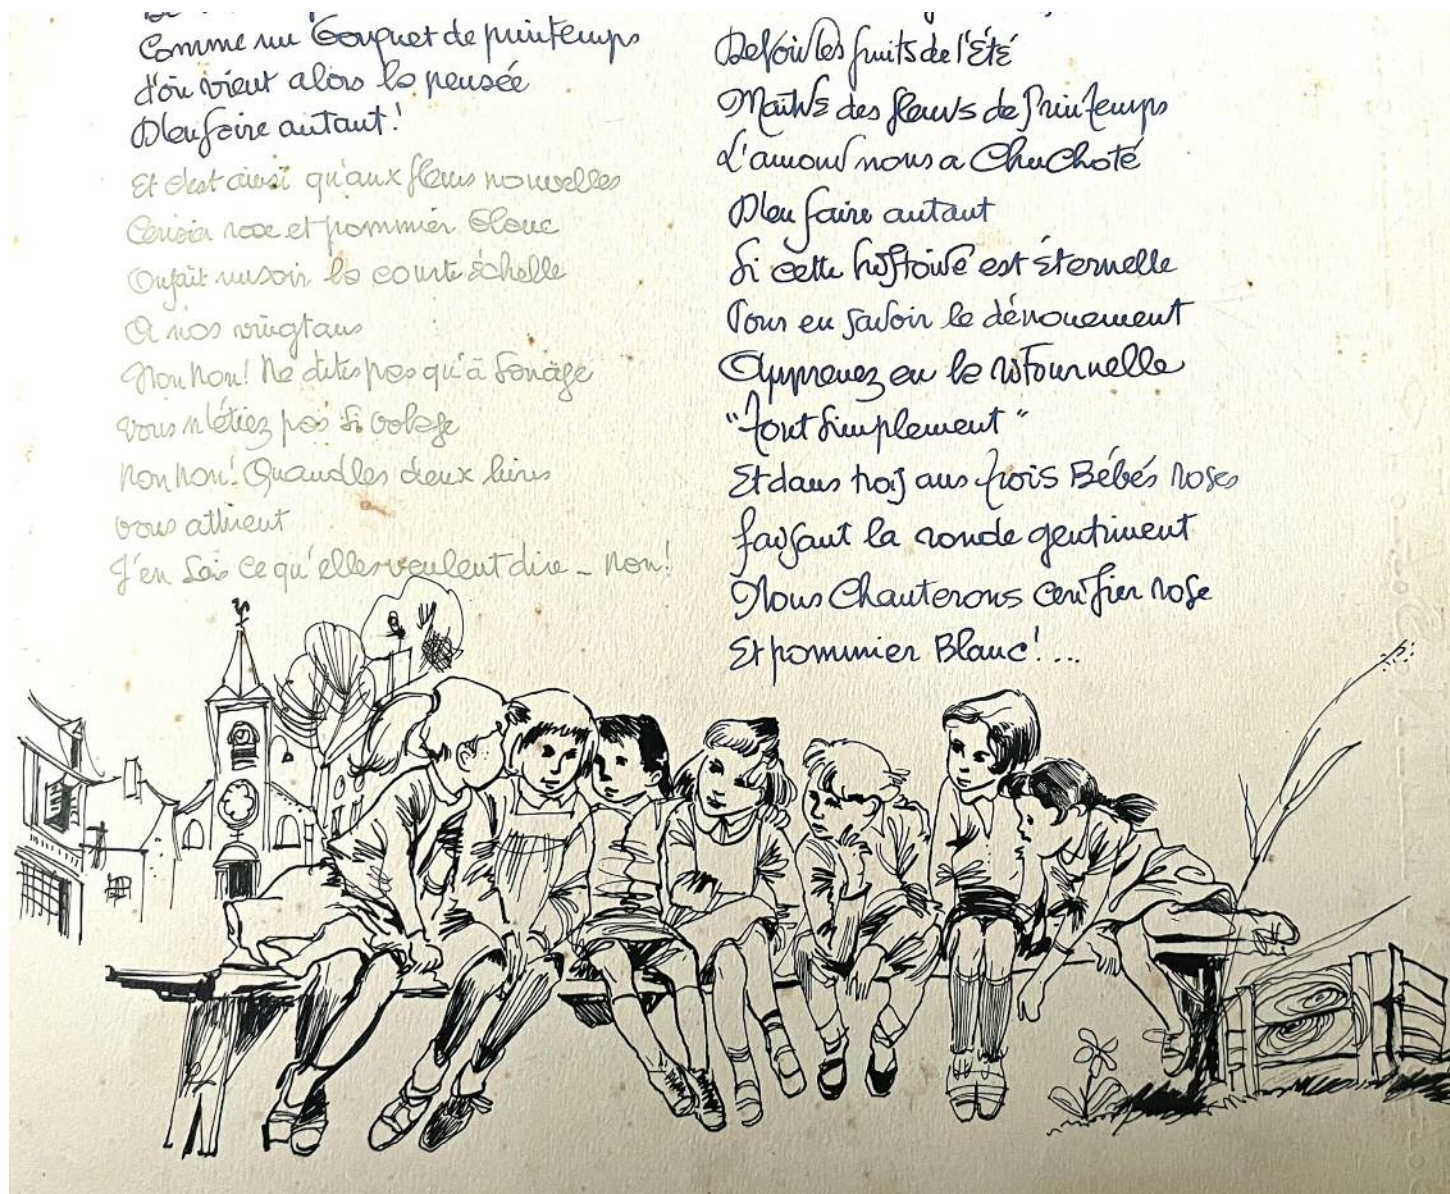 Comme un bouquet de printemps
d'où vient alors la pensée
D'en faire autant!
Et c'est ainsi qu'aux fleurs nouvelles
Cerisier rose et pommier blanc
On fait un soir la courte échelle
A nos vingt ans
Non Non! Ne dites pas qu'à son âge
vous n'étiez pas si volage
Non Non! Quand les deux lèvres
vous attirent
J'en sais ce qu'elles veulent dire _ Non!
De voir les fruits de l'été
Maître des fleurs de Printemps
L'amour nous a Chuchoté
D'en faire autant
Si cette histoire est éternelle
Pour en savoir le dénouement
Apprenez en la ritournelle
"Tout simplement"
Et dans trois ans trois Bébés roses
faisant la ronde gentiment
Nous Chanterons cerisier rose
Et pommier Blanc!...